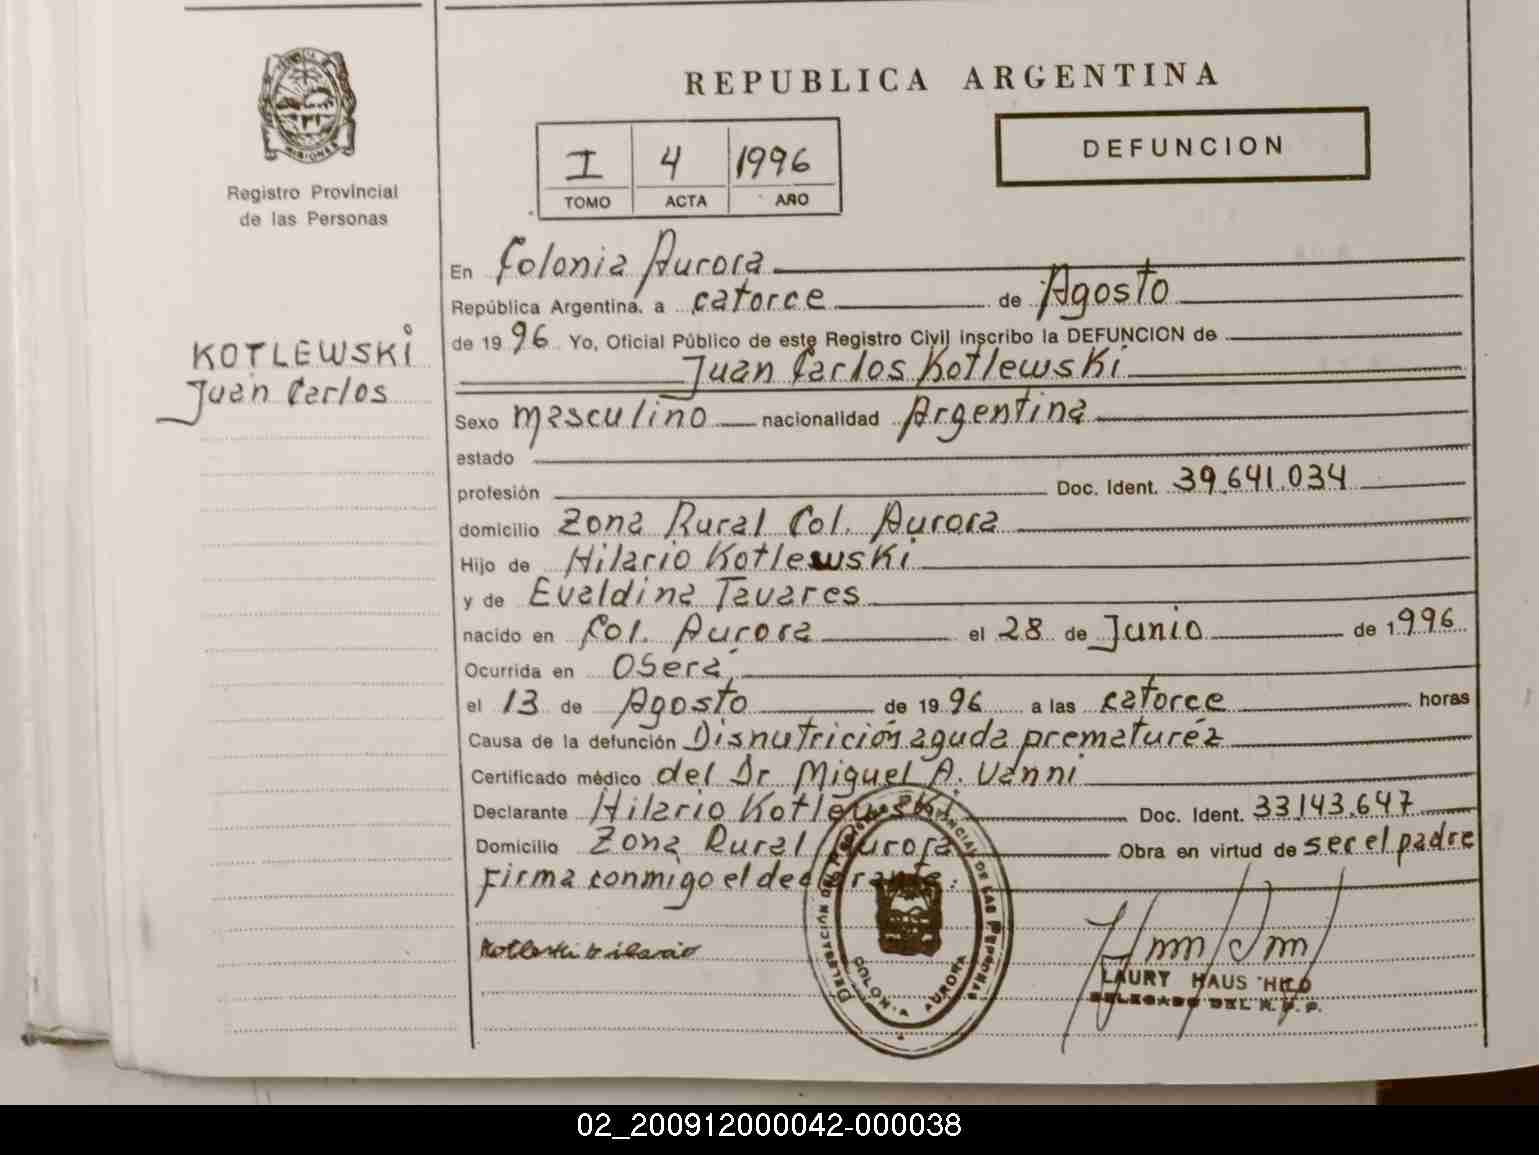 REPUBLICA ARGENTINA
DEFUNCION
I 4 1996
TOMO ACTA AÑO
MISIONES
Registro Provincial
de las Personas
KOTLEWSKI
Juan Carlos
En Colonia Aurora
República Argentina, a catorce de Agosto
de 1996 Yo, Oficial Público de este Registro Civil inscribo la DEFUNCION de
Juan Carlos Kotlewski
Sexo masculino nacionalidad Argentina
estado
profesión Doc. Ident. 39.641.034
domicilio Zona Rural Col. Aurora
Hijo de Hilario Kotlewski
y de Evaldina Tavares
nacido en Col. Aurora el 28 de Junio de 1996
Ocurrida en Oberá
el 13 de Agosto de 1996 a las catorce horas
Causa de la defunción Disnutrición aguda prematuréz
Certificado médico del Dr Miguel A. Vanni
Declarante Hilario Kotlewski Doc. Ident. 33143.647
Domicilio Zona Rural Aurora Obra en virtud de ser el padre
Firma conmigo el declarante:
DELEGACIÓN DEL REGISTRO PROVINCIAL DE LAS PERSONAS
COLONIA AURORA
LAURY HAUS HILD
DELEGADO DEL R. P. P.
02_200912000042-000038